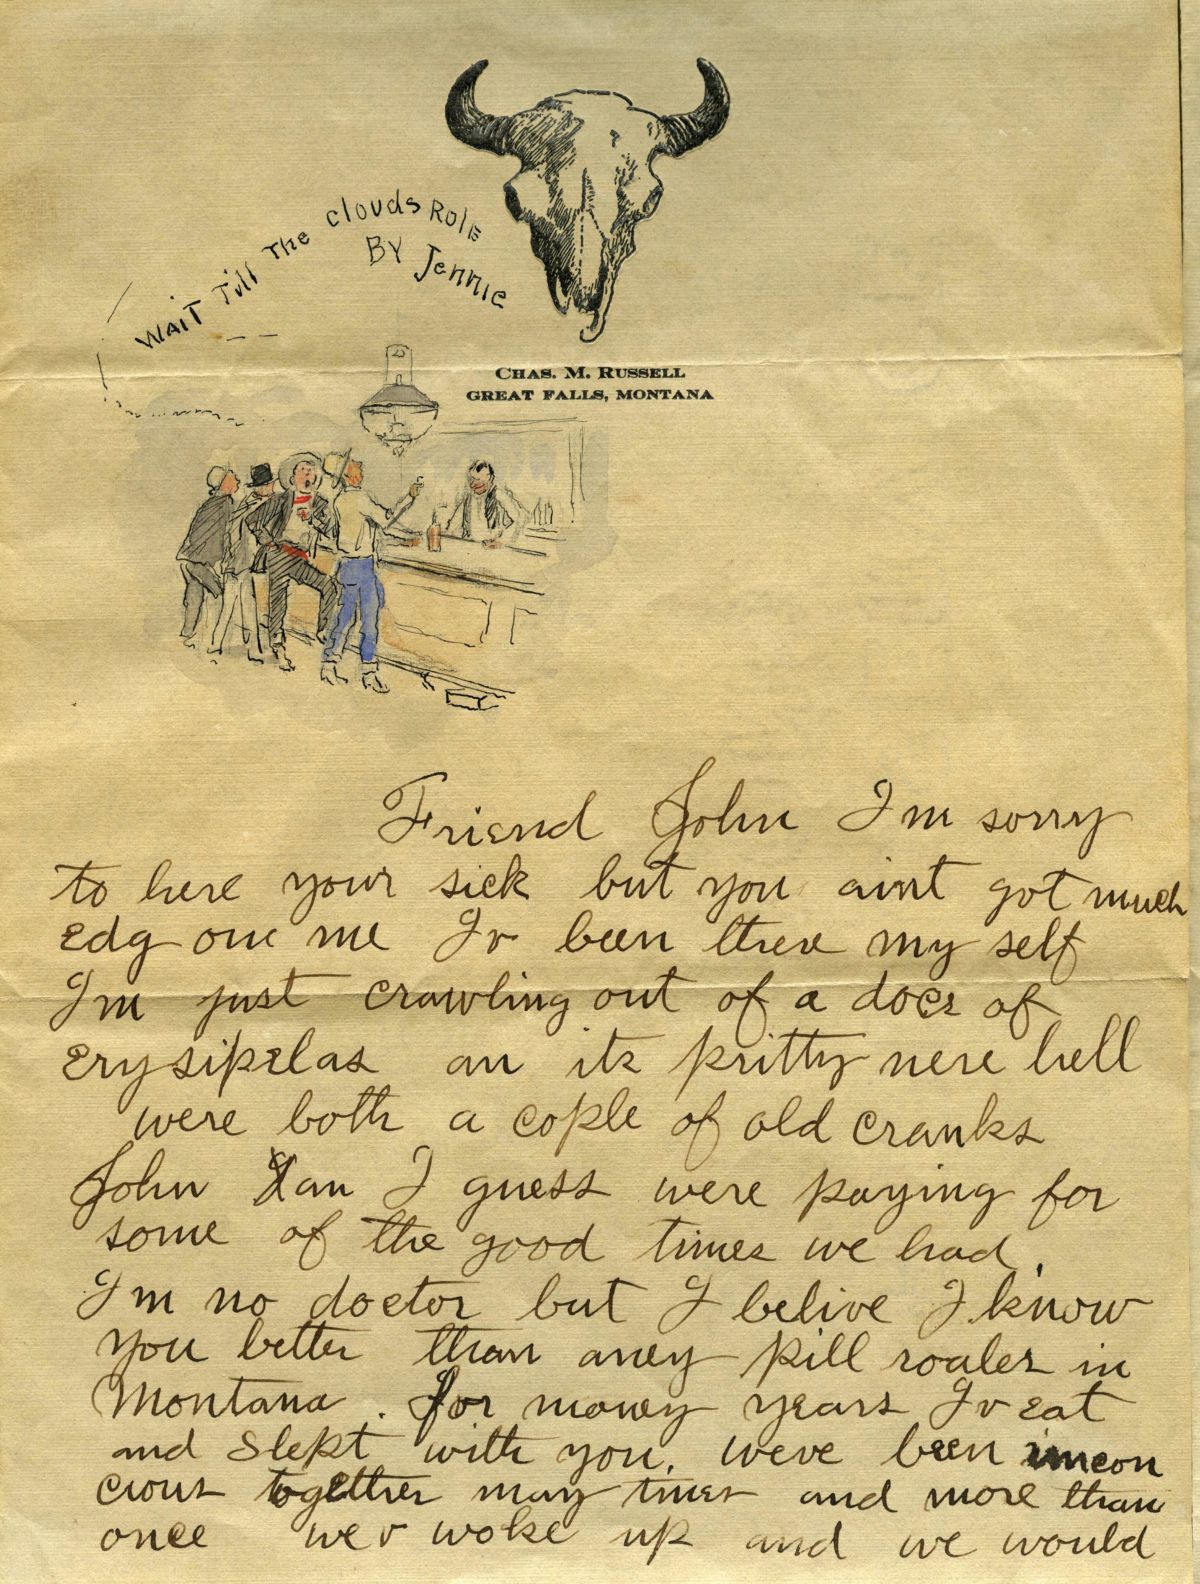 WAIT Till The Clouds Role
BY Jennie
CHAS. M. RUSSELL
GREAT FALLS, MONTANA
Friend John I'm sorry
to here your sick but you aint got much
edg one me Iv been there my self
I'm just crawling out of a doce of
erysipelas an its pritty nere hell
were both a cople of old cranks
John an I guess were paying for
some of the good times we had.
I'm no doctor but I belive I know
you better than aney pill roaler in
Montana. for maney years Iv eat
and slept with you. weve been uncon
cious together many times and more than
once wev woke up and we would